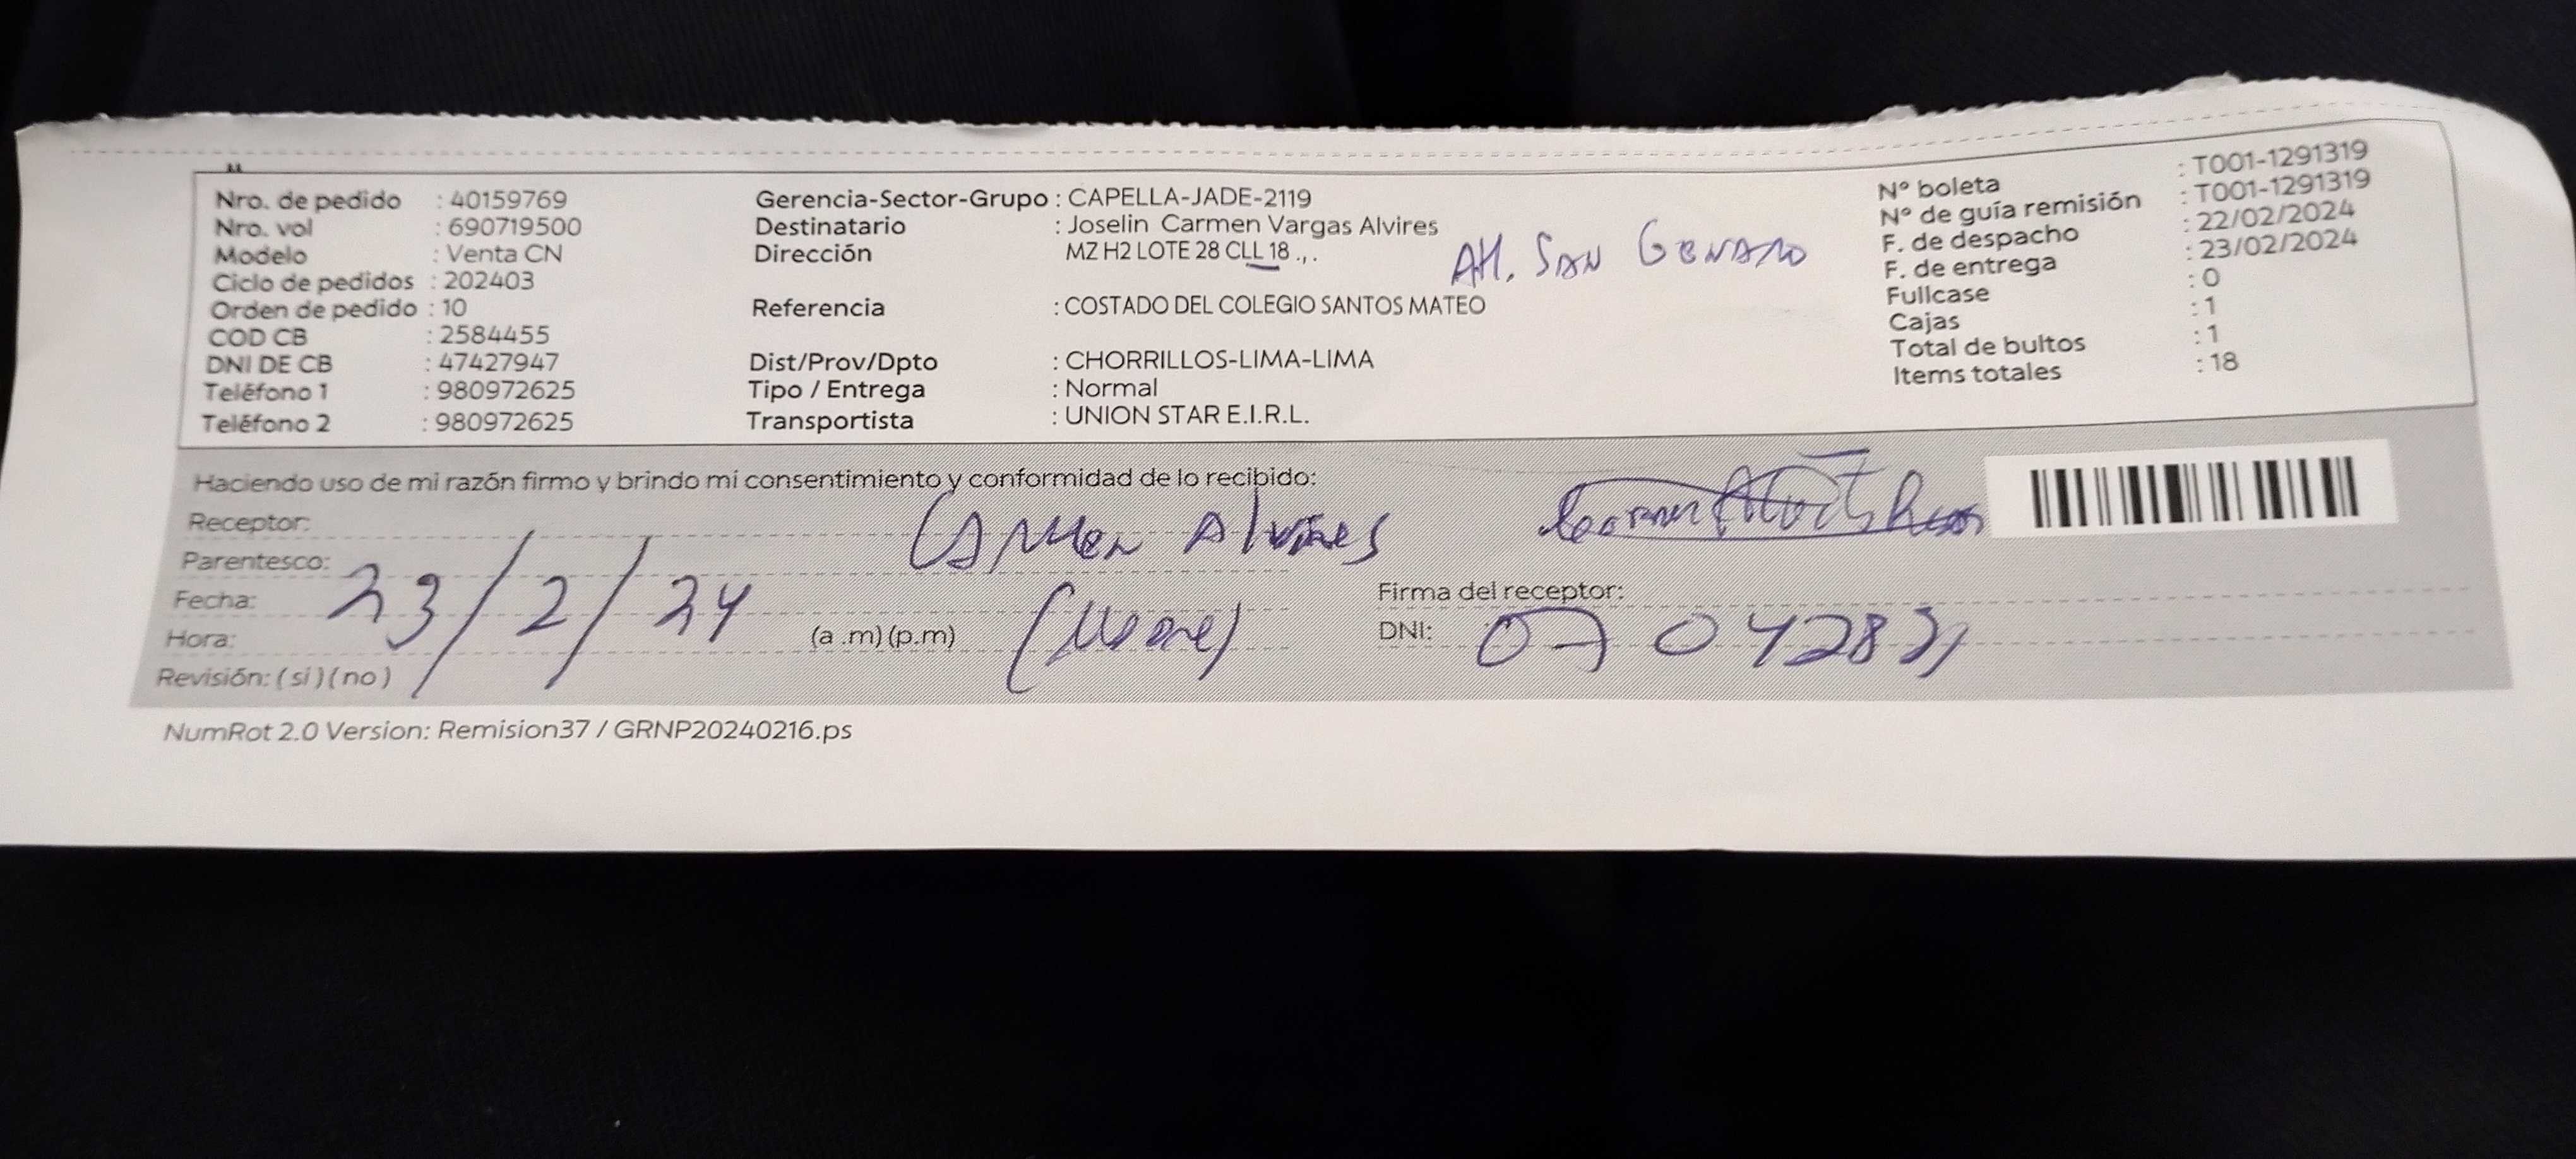 Nro. de pedido : 40159769
Nro. vol : 690719500
Modelo : Venta CN
Ciclo de pedidos : 202403
Orden de pedido : 10
COD CB : 2584455
DNI DE CB : 47427947
Teléfono 1 : 980972625
Teléfono 2 : 980972625
Gerencia-Sector-Grupo : CAPELLA-JADE-2119
Destinatario : Joselin Carmen Vargas Alvires
Dirección MZ H2 LOTE 28 CLL 18 .,. AH. SAN GENARO
Referencia : COSTADO DEL COLEGIO SANTOS MATEO
Dist/Prov/Dpto : CHORRILLOS-LIMA-LIMA
Tipo / Entrega : Normal
Transportista : UNION STAR E.I.R.L.
N° boleta : T001-1291319
N° de guía remisión : T001-1291319
F. de despacho : 22/02/2024
F. de entrega : 23/02/2024
Fullcase : 0
Cajas : 1
Total de bultos : 1
Items totales : 18
Haciendo uso de mi razón firmo y brindo mi consentimiento y conformidad de lo recibido:
Receptor: Carmen Alvires
Parentesco:
Fecha: 23/2/24
Hora: (a .m) (p.m)
Revisión: ( si ) ( no )
Firma del receptor:
DNI:
NumRot 2.0 Version: Remision37 / GRNP20240216.ps